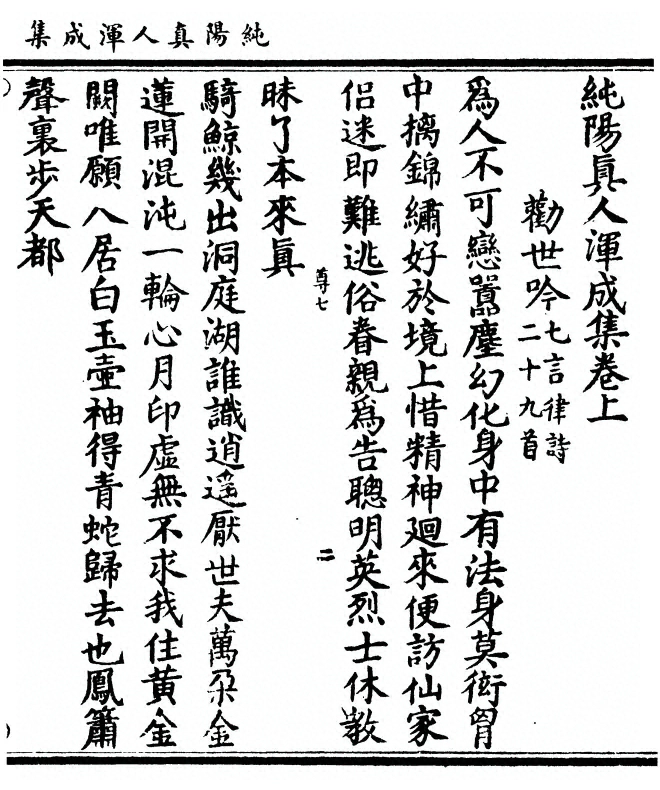 純陽真人渾成集
純陽真人渾成集卷上
勸世吟七言律詩二十九首
爲人不可戀囂塵幻化身中有法身莫衒胷
中摛錦繡好於境上惜精神廻來便訪仙家
侣迷即難逃俗眷親爲告聰明英烈士休教
昧了本來真
尊七
二
騎鯨幾出洞庭湖誰識逍遥厭世夫萬朶金
蓮開混沌一輪心月印虛無不求我住黄金
闕唯願人居白玉壷袖得青蛇歸去也鳳簫
聲裏步天都